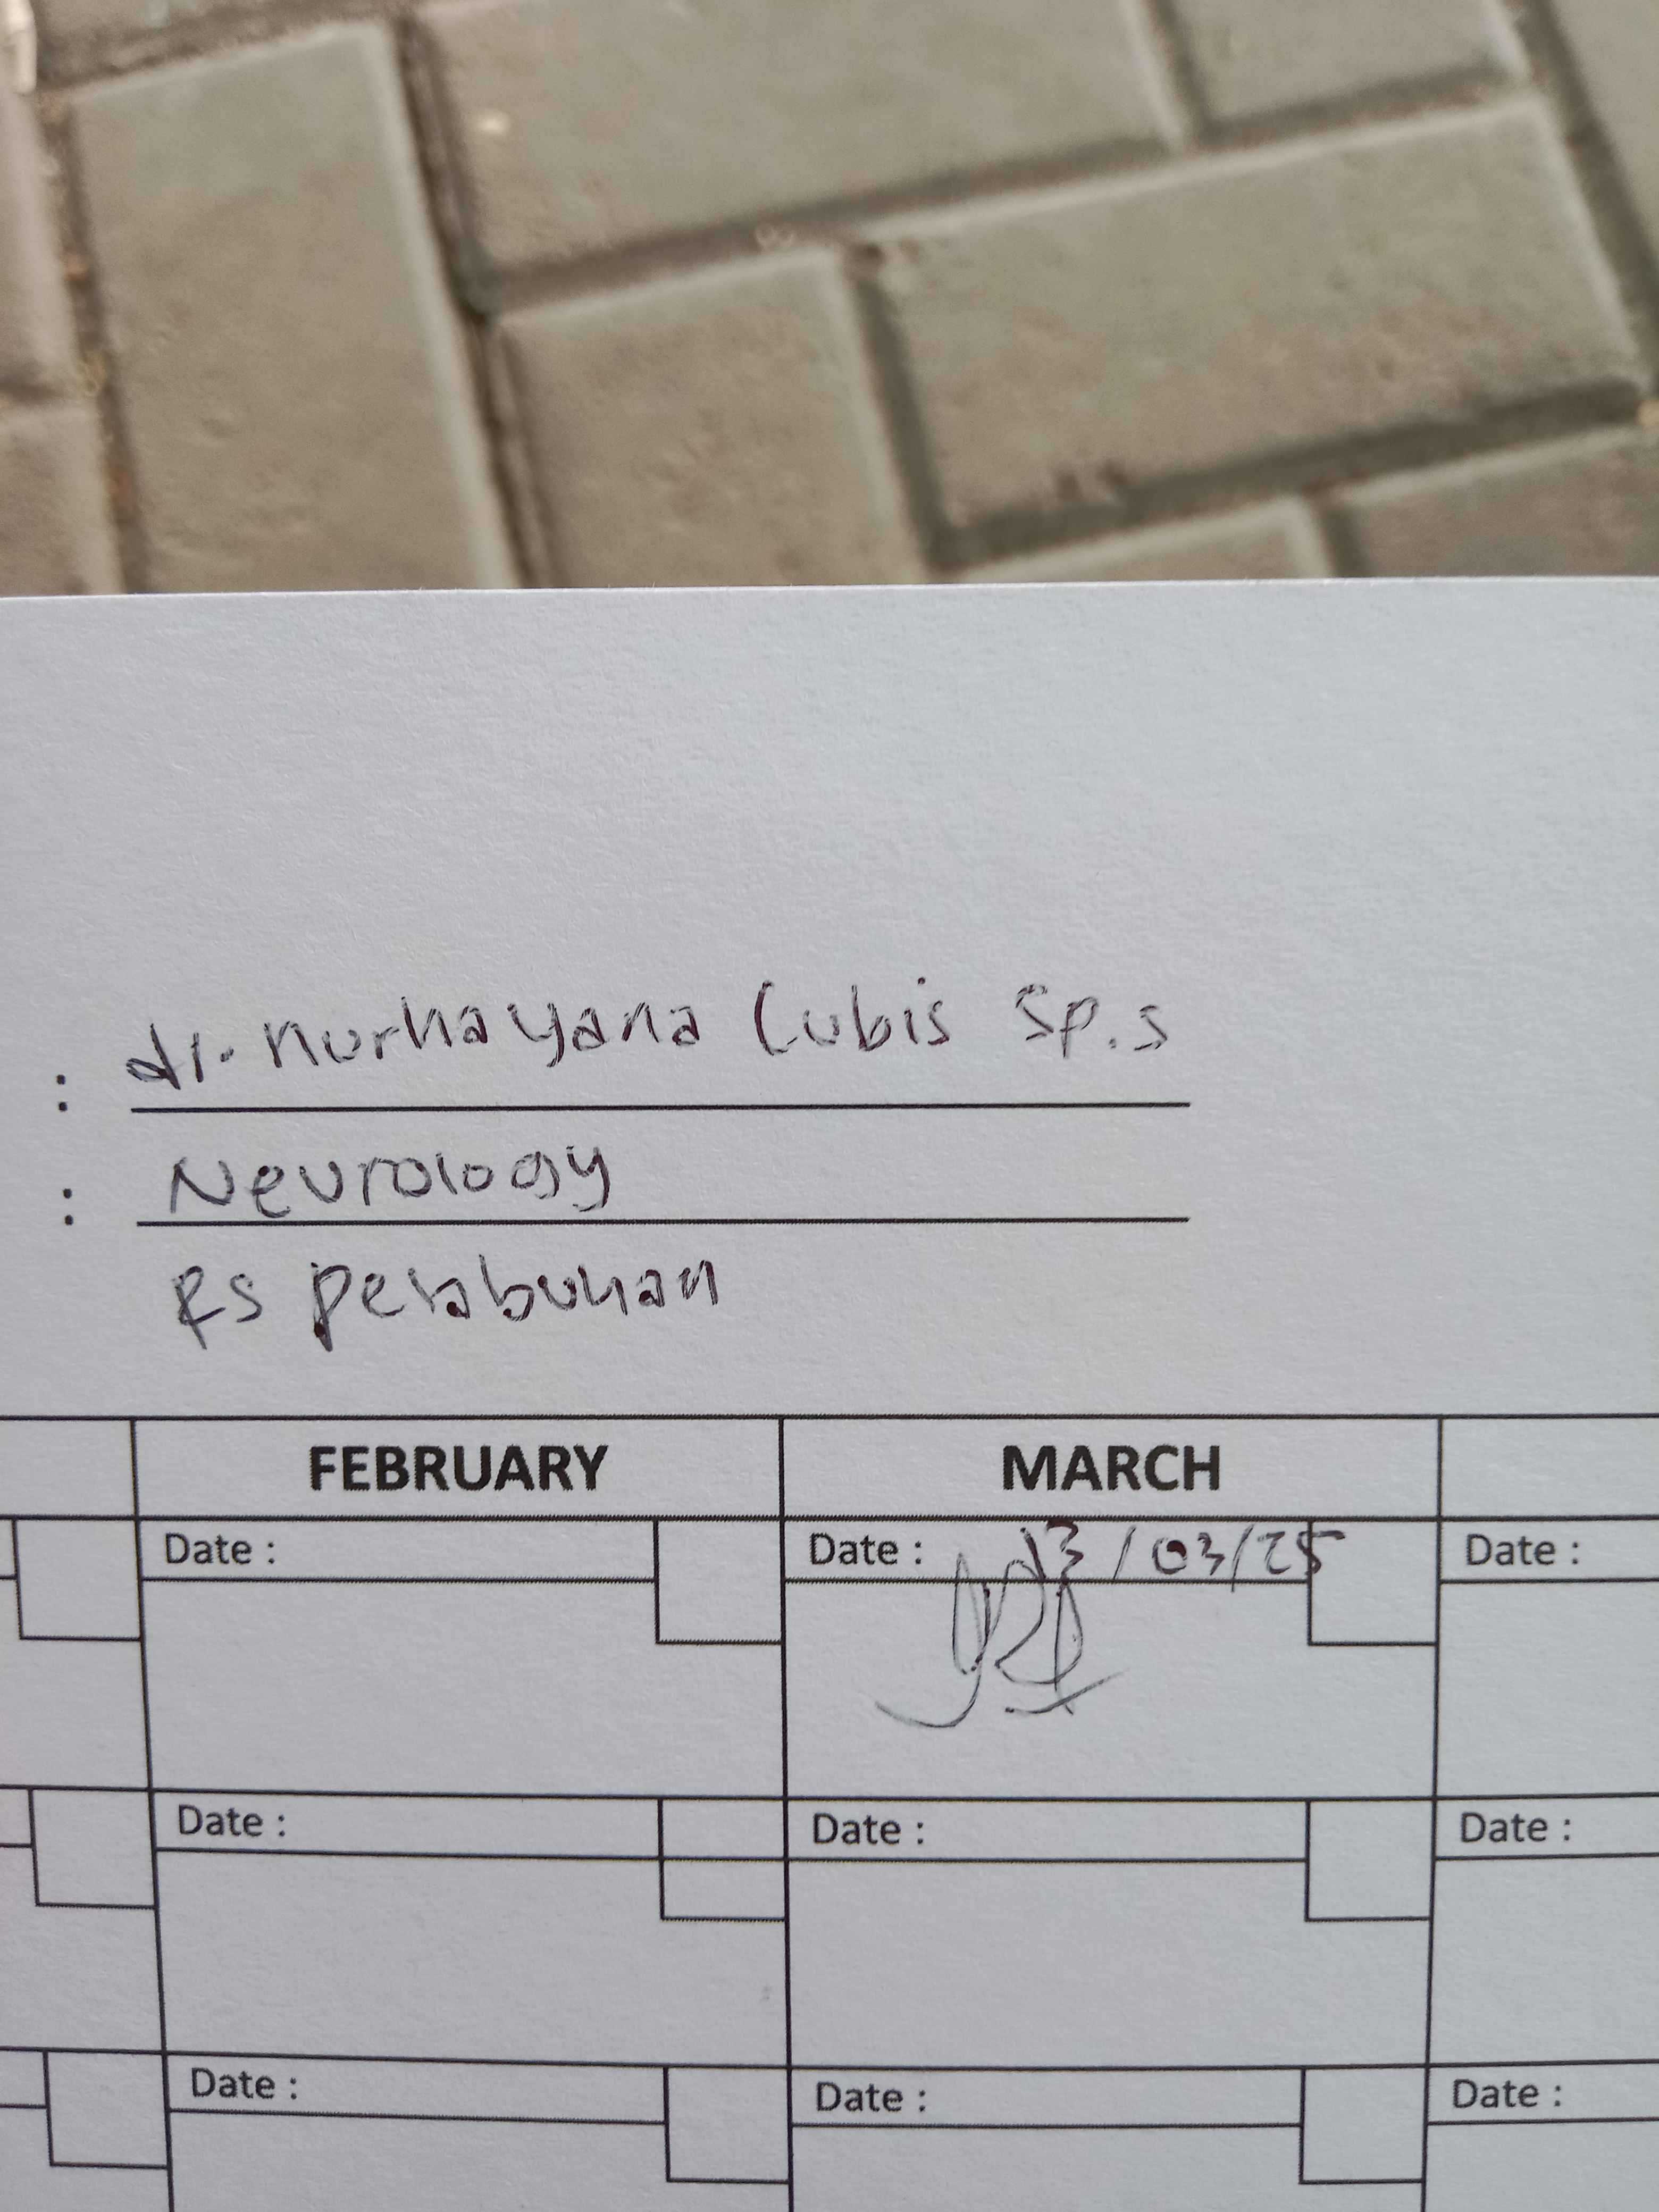 : dr. Nurhayana Lubis Sp.s
: Neurology
RS pelabuhan
FEBRUARY MARCH
Date : Date : 13/03/25 Date :
Date : Date : Date :
Date : Date : Date :